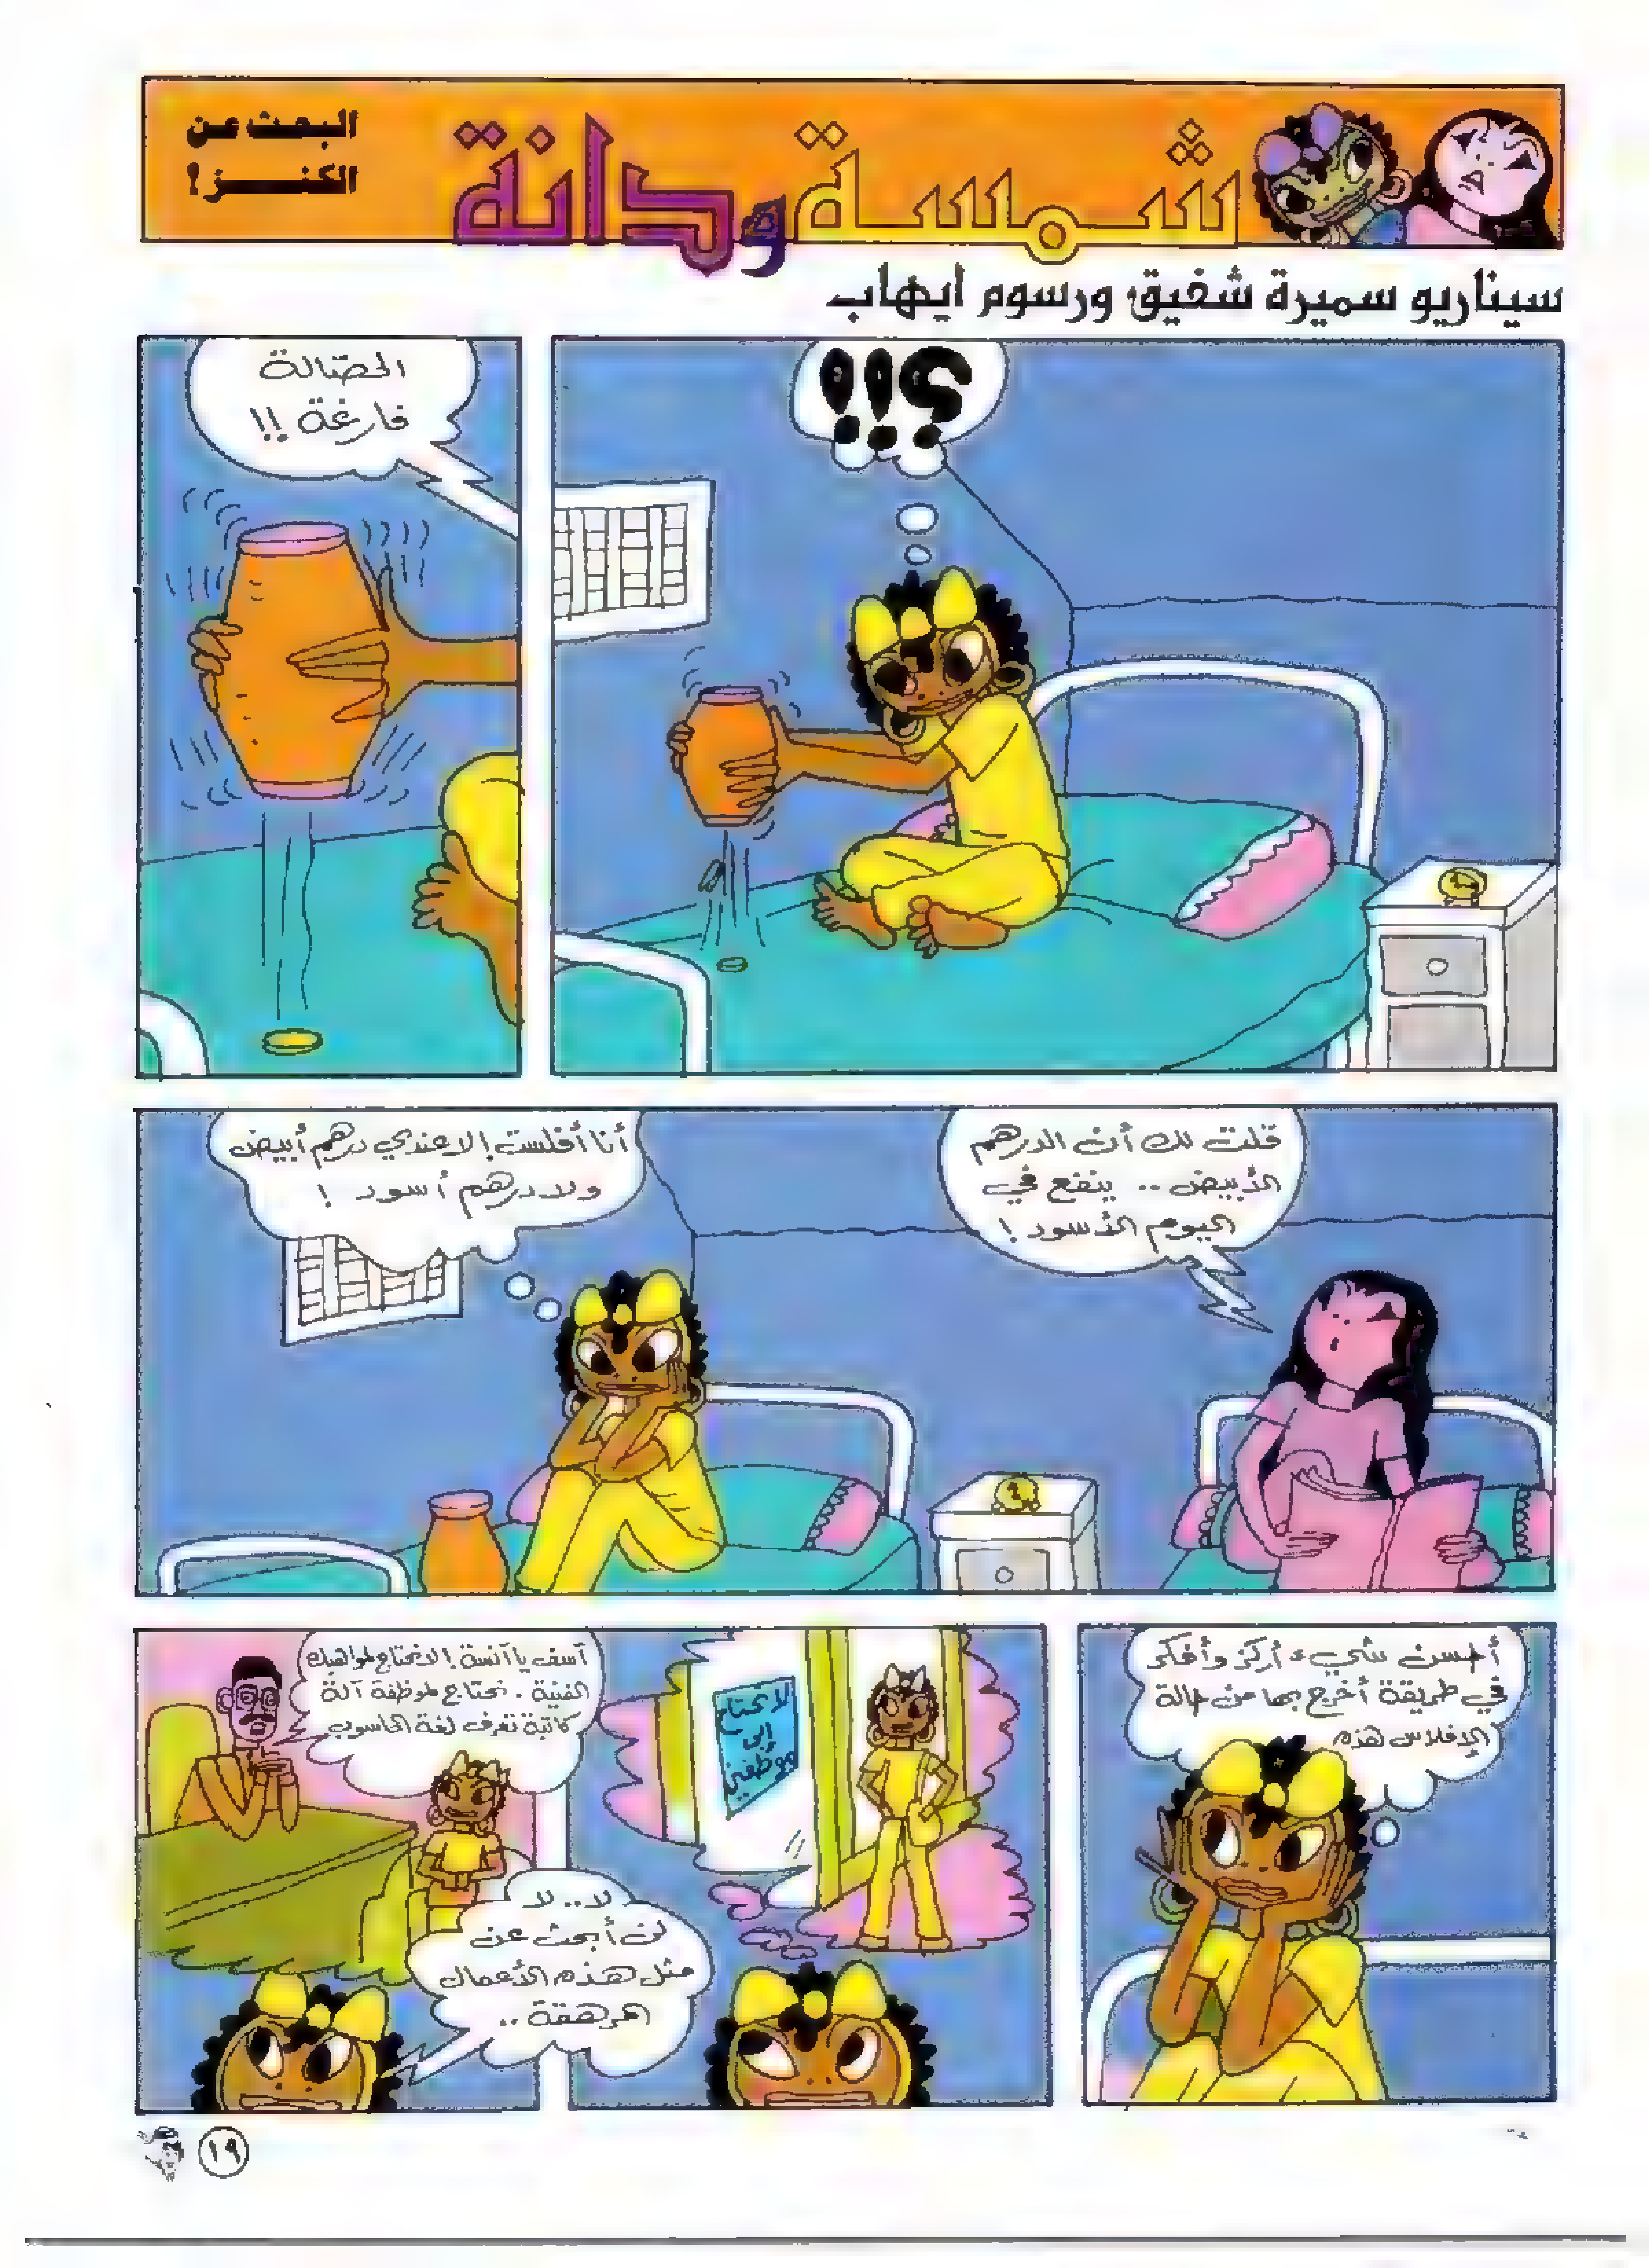 شمسة ودانة
البحث عن
الكنز؟
سيناريو سميرة شفيق، ورسوم ايهاب
؟!!
الحصّالة
فارغة !!
قلت لك أن الدرهم
الأبيض .. ينفع في
اليوم الأسود !
أنا أفلست ! لا عندي درهم أبيض
ولا درهم أسود !
أحسن شيء أركز وأفكر
في طريقة أخرج بها من حالة
الإفلاس هذه
لا نحتاج
إلى
موظفين
آسف يا آنسة ! لا نحتاج لمواهبك
الفنية . نحتاج لموظفة آلة
كاتبة تعرف لغة الحاسوب
لا .. لا
لن أبحث عن
مثل هذه الأعمال
المرهقة ..
١٩